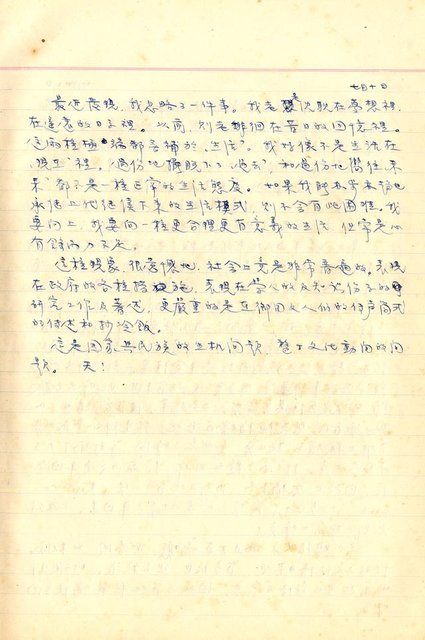 七月十日
最近發現,我忽略了一件事。我老是沉耽在夢想裡,
在這意的日子裡。以前,則老排徊在昔日的回憶裡。
這兩種極端都丟補的"生活"。我好像不是生活在
"現在"裡。過份地擺脫不了"過去",和過份地嚮往"未
來"都不是一種正常的生活態度。如果我能本本初地
承從上代經傳下來的生活模式,則不會有此困擾。我
要向上,我要向一種更合理更有意義的生活,但常是心
有餘而力不足。
這種現象,很普遍地,社會上竟是非常普遍的。表現
在政府的各種措施,表現在學人的及知識份子的
研究工作及著述,更嚴重的是在鄉間文人們的
的傳述和抄冷飯。
這是國家與民族的生機問題,整個文化動向的問
題。天!